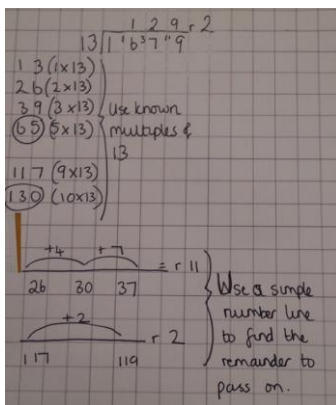 1 2 9 r 2
13 1 ¹6 ³7 ¹¹9
13 (1x13)
26 (2x13)
39 (3x13)
65 (5x13)
117 (9x13)
130 (10x13)
use known
multiples of
13
+4 +7
26 30 37 = r 11
+2
117 119 r 2
Use a simple
number line
to find the
remainder to
pass on.